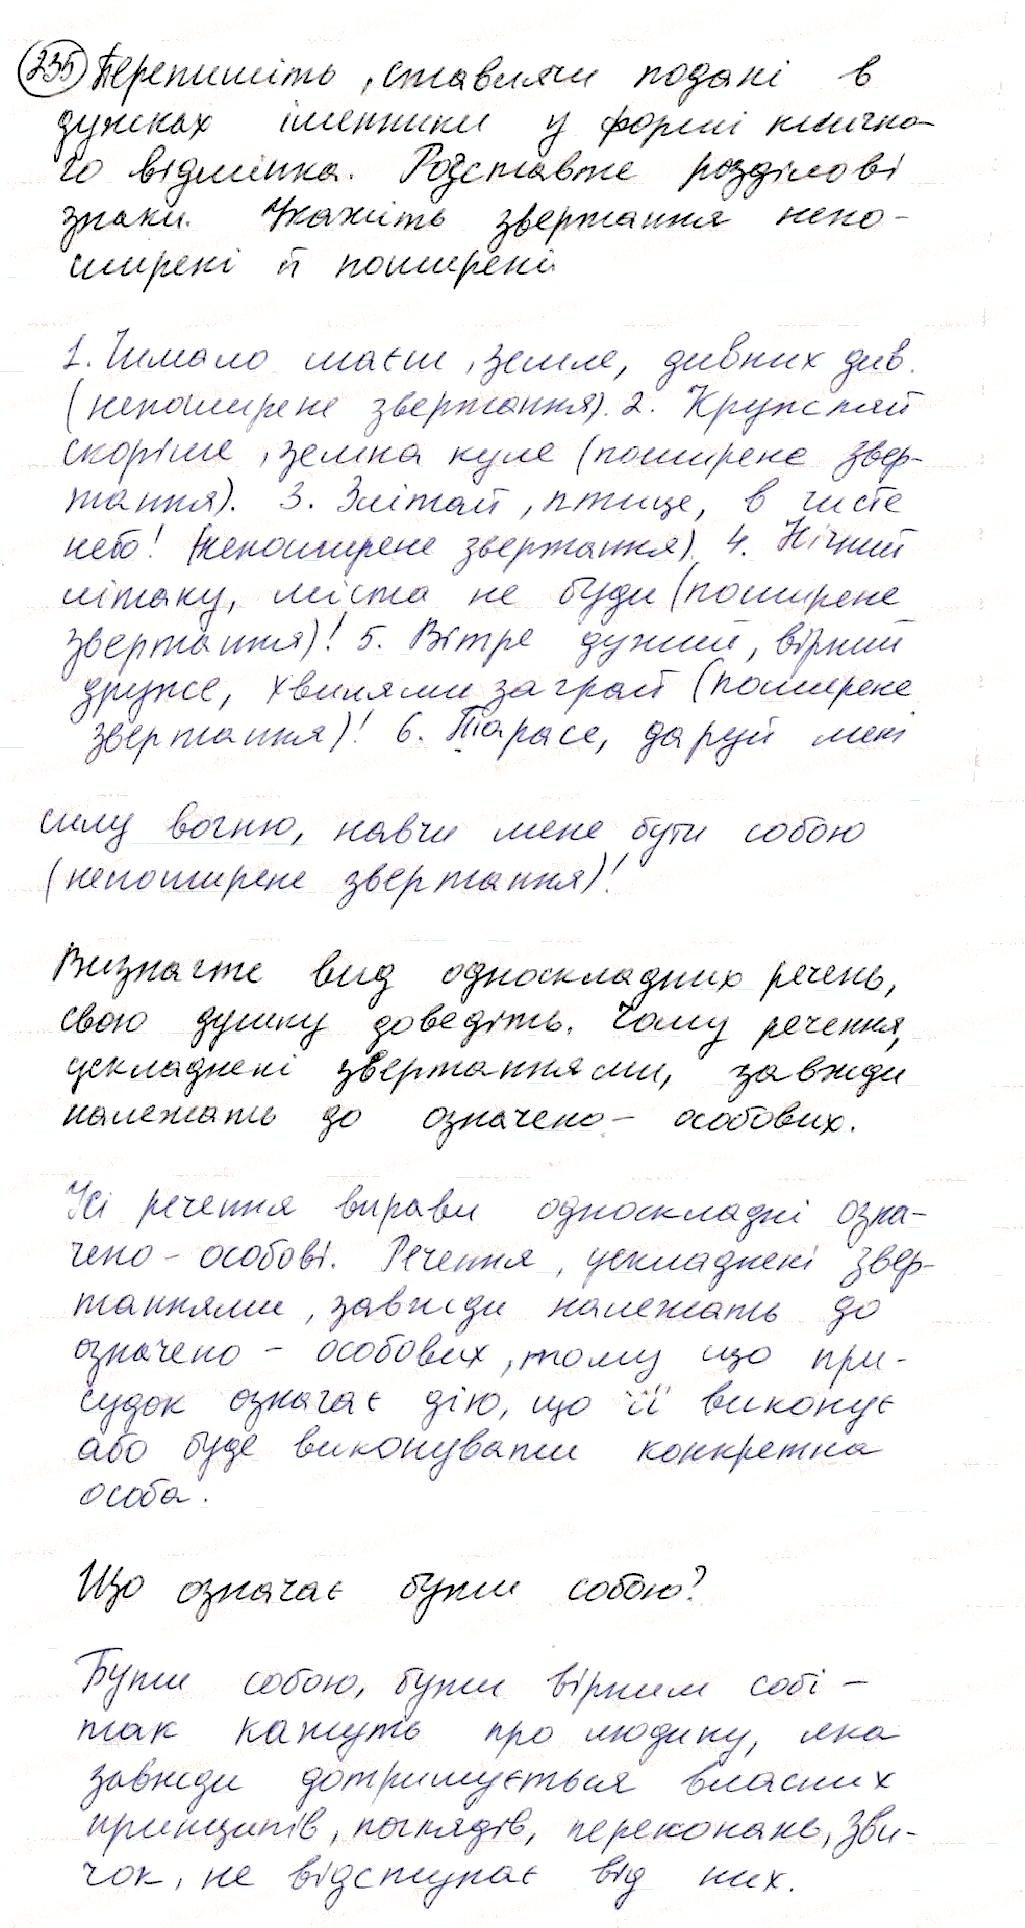 235 Перепишіть, ставлячи подані в
дужках іменники у формі клично-
го відмінка. Розставте розділові
знаки. Укажіть звертання непо-
ширені й поширені.
1. Чимало маєш, земле, дивних див.
(непоширене звертання). 2. Кружляй
скоріше, земна куле (поширене звер-
тання). 3. Злітай, птице, в чисте
небо! (непоширене звертання). 4. Нічний
літаку, міста не буди (поширене
звертання)! 5. Вітре дужий, вірний
друже, хвилями заграй (поширене
звертання)! 6. Тарасе, даруй мені
силу вогню, навчи мене бути собою
(непоширене звертання)!
Визначте вид односкладних речень,
свою думку доведіть. Чому речення,
ускладнені звертаннями, завжди
належать до означено-особових.
Усі речення вправи односкладні озна-
чено-особові. Речення, ускладнені звер-
таннями, завжди належать до
означено-особових, тому що при-
судок означає дію, що її виконує
або буде виконувати конкретна
особа.
Що означає бути собою?
Бути собою, бути вірним собі -
так кажуть про людину, яка
завжди дотримується власних
принципів, поглядів, переконань, зви-
чок, не відступає від них.